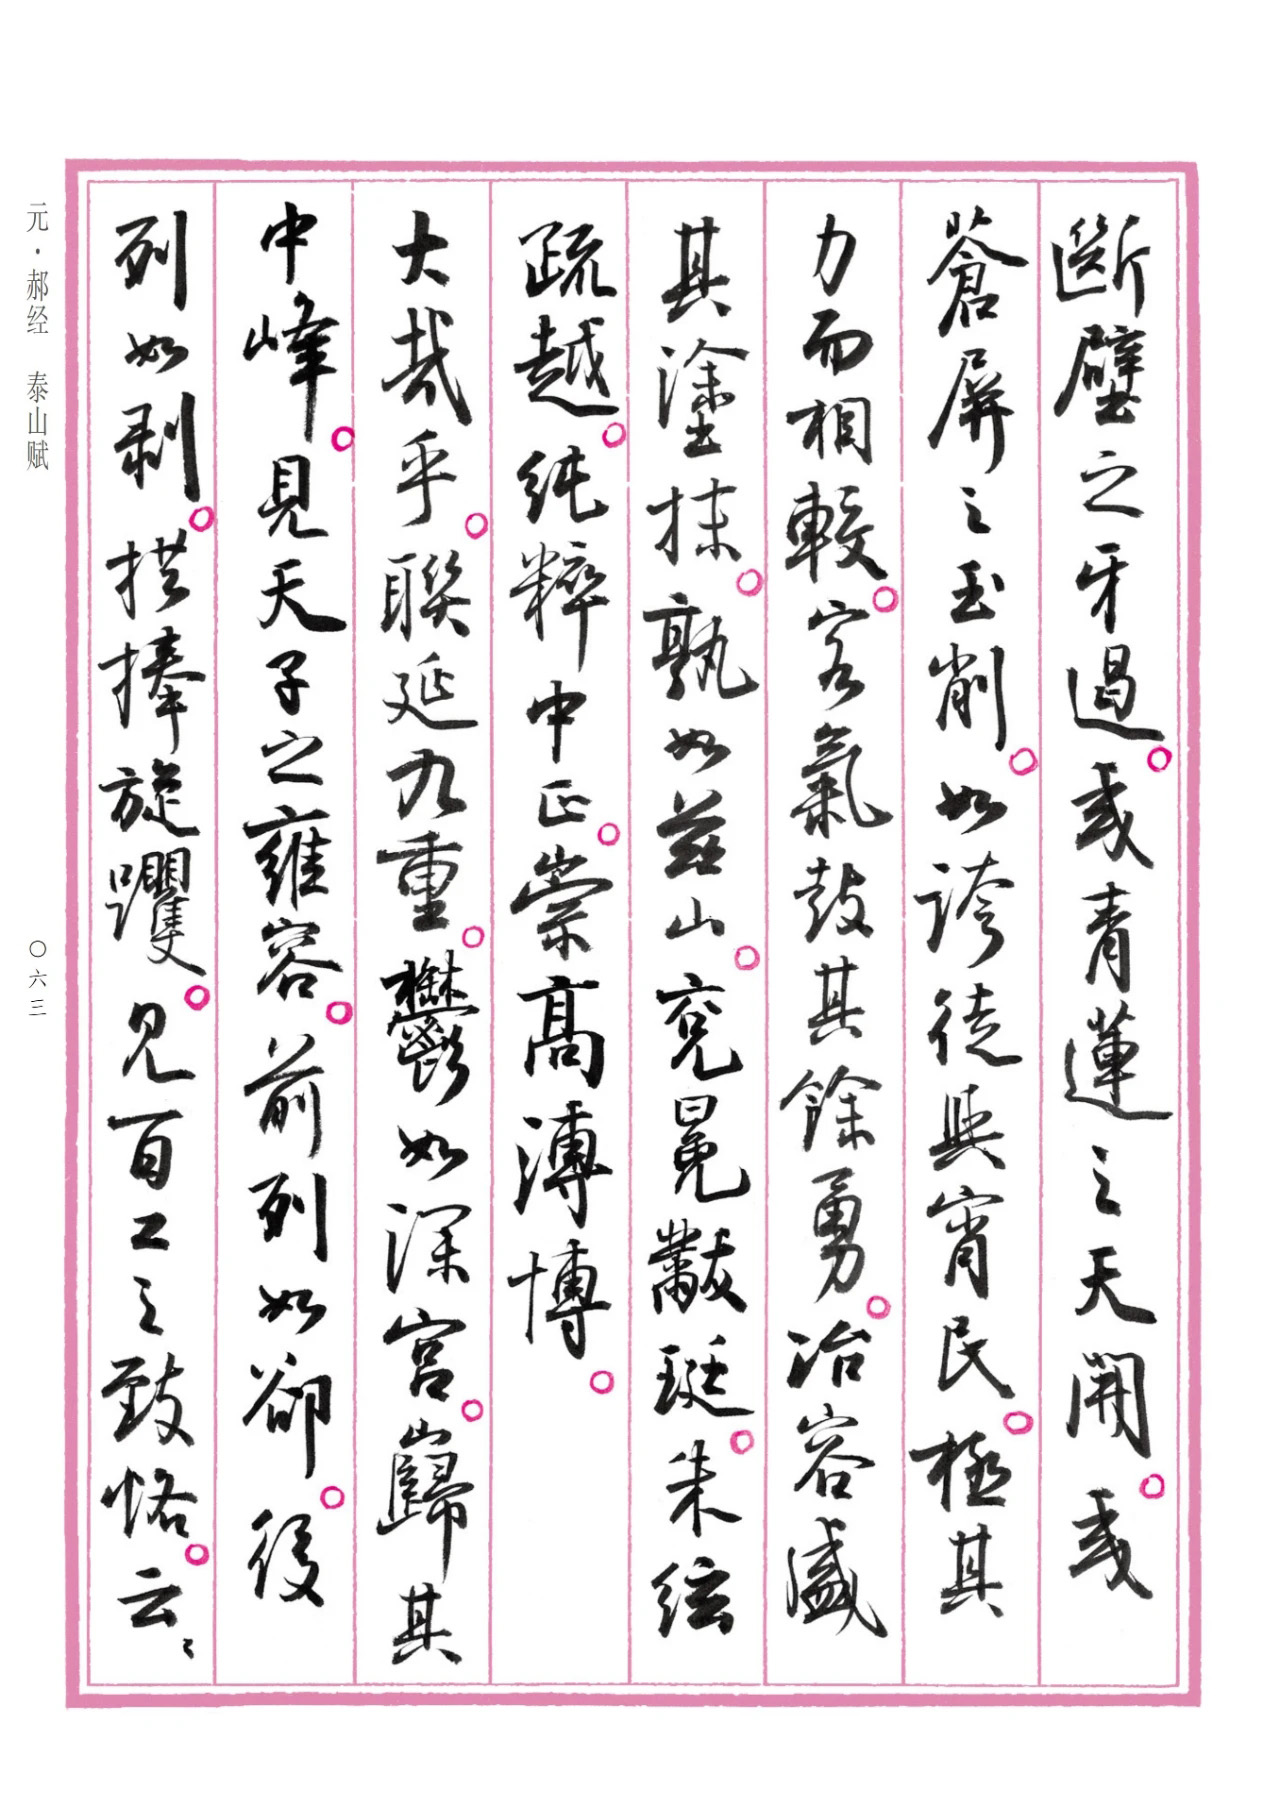 斷壁之牙過。或青蓮之天開。或
蒼屏之玉削。如誇徒與宵民。極其
力而相較。客氣鼓其餘勇。冶容盛
其塗抹。孰如茲山。袞冕黻珽。朱絃
疏越。純粹中正。崇高溥博。
大哉乎。聯延九重。鬱如深宮。巋其
中峰。見天子之雍容。前列如卻。後
列如剥。拱捧旋躩。見百工之致恪。云云
元·郝经 泰山赋
〇六三